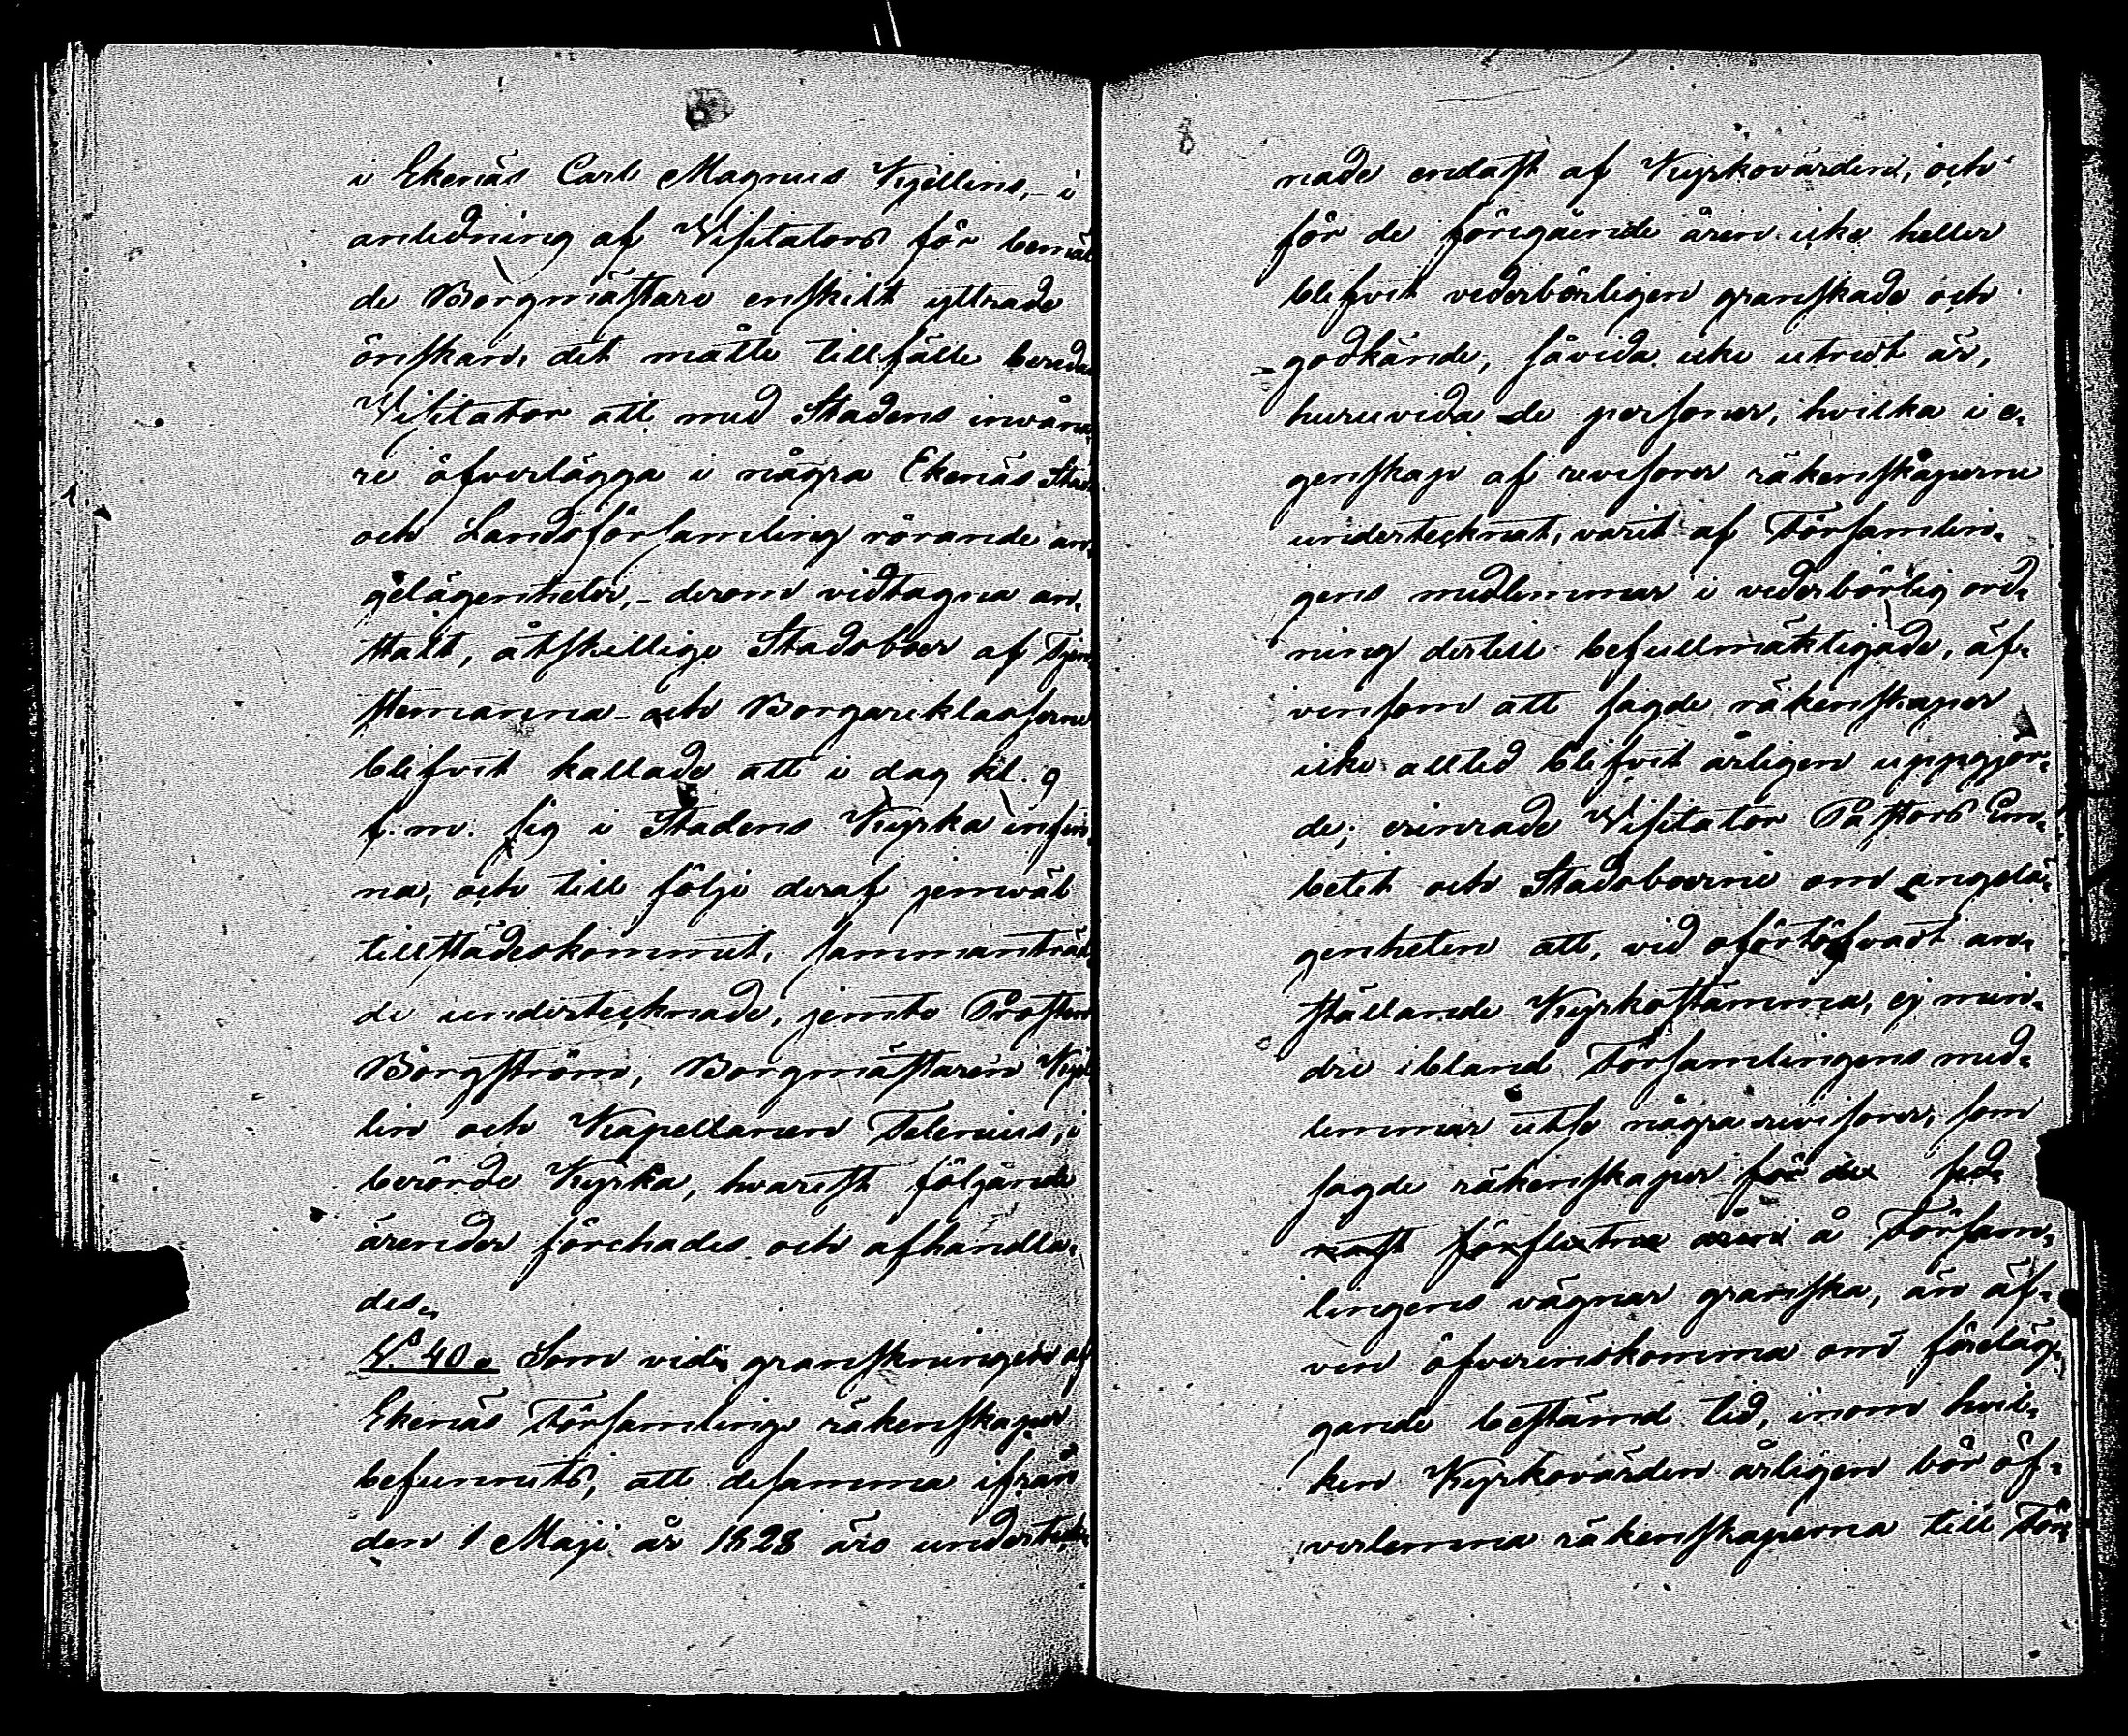 i Ekenäs Carl Magnus Kjellins, - i
anledning af Visitators för bemäl
de Borgmästare enskilt yttrade
önskan, det måtte tillfälle bereda
Visitator att med Stadens inwåna
re öfverlägga i några Ekenäs Stads
och Landsförsamling rörande an-
gelägenheter, - derom vidtagna an-
stalt, åtskillige Stadsboer af Tjen
stemanna- och Borgareklasserne
blifvit kallade att i dag kl. 9
f.m. sig i Stadens Kyrka infin
na, och till följe deraf jemwäl
tillstädeskommit, sammanträd
de undertecknade, jemte Prosten
Borgström, Borgmästaren Kjel
lin och Kapellanen Felenius, i
berörde Kyrka, hwarest följande
ärender förehades och afhandla-
des.
§. 40. Som vid granskningen af
Ekenäs Församlings räkenskaper
befunnits, att desamma ifrån
den 1 Maji år 1828 äro underteck
8
nade endast af Kyrkovärden, och
för de föregående åren icke heller
blifvit vederbörligen granskade och
godkände, såvida icke utredt är,
huruvida de personer, hvilka i e-
genskap af revisorer räkenskaperne
undertecknat, varit af Församlin-
gens medlemmar i vederbörlig ord-
ning dertill befullmäktigade, äf-
vensom att sagde räkenskaper
icke alltid blifvit årligen uppgjor-
de; erinrade Visitator Pastors Em-
betet och Stadsboerne om angelä-
genheten att, vid ofördröfvadt an-
ställande Kyrkostämma, ej min-
dre ibland Församlingens med-
lemmar utse några revisorer, som
sagde räkenskaper för de sed-
nast förflutna åren å Församl-
lingens vägnar granska, än äf-
ven öfverenskomma om föreläg-
gande bestämd tid, inom hvil-
ken Kyrkovärden årligen bör öf-
verlemna räkenskaperna till För-